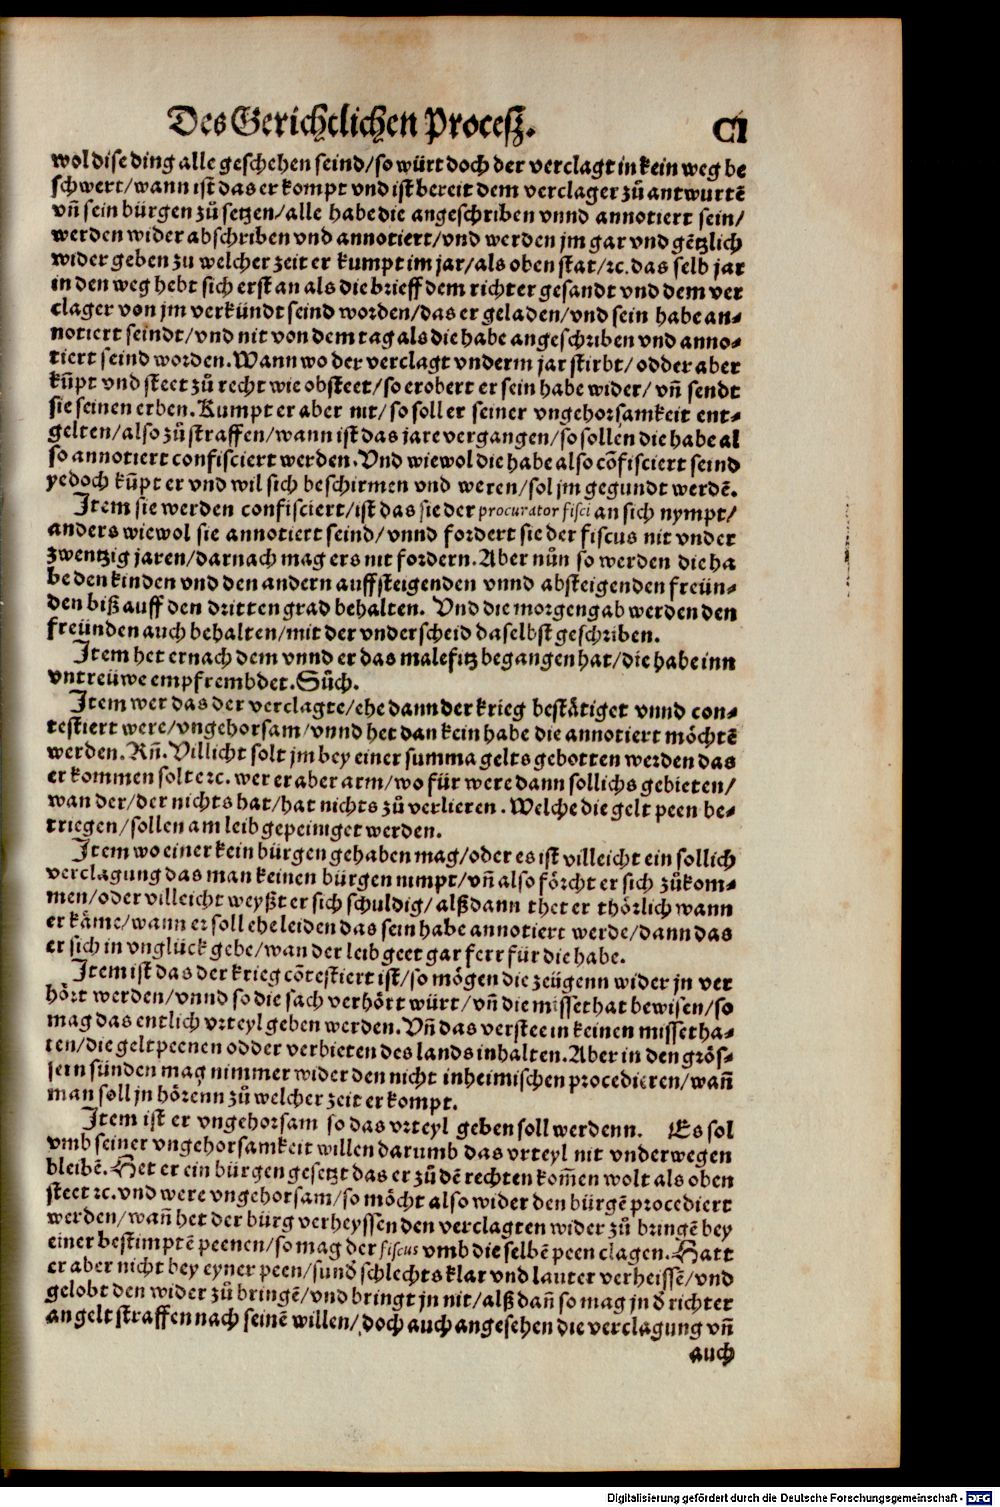 Des Gerichtlichen Procesß. CI
wol dise ding alle geschehen seind/so würt doch der verclagt in kein weg be
schwert/wann ist das er kompt vnd ist bereit dem verclager zů antwurtē
vñ sein bürgen zů setzen/alle habe die angeschriben vnnd annotiert sein/
werden wider abschriben vnd annotiert/vnd werden jm gar vnd gētzlich
wider geben zu welcher zeit er kumpt im jar/als oben stat/ꝛc. das selb jar
in den weg hebt sich erst an als die brieff dem richter gesandt vnd dem ver
clager von jm verkündt seind worden/das er geladen/vnd sein habe an⸗
notiert seindt/vnd nit von dem tag als die habe angeschriben vnd anno⸗
tiert seind worden. Wann wo der verclagt vnderm jar stirbt/odder aber
kūpt vnd steet zů recht wie obsteet/so erobert er sein habe wider/vñ sendt
sie seinen erben. Kumpt er aber nit/so soll er seiner vngehorsamkeit ent⸗
gelten/also zů straffen/wann ist das jare vergangen/so sollen die habe al
so annotiert confisciert werden. Vnd wiewol die habe also cōfisciert seind
yedoch kūpt er vnd wil sich beschirmen vnd weren/sol jm gegundt werdē.
Item sie werden confisciert/ist das sie der procurator fisci an sich nympt/
anders wiewol sie annotiert seind/vnnd fordert sie der fiscus nit vnder
zwentzig jaren/darnach mag ers nit fordern. Aber nůn so werden die ha
be den kinden vnd den andern auffsteigenden vnnd absteigenden freün⸗
den biß auff den dritten grad behalten. Vnd die morgengab werden den
freünden auch behalten/mit der vnderscheid daselbst geschriben.
Item het er nach dem vnnd er das malefitz begangen hat/die habe inn
vntreüwe empfrembdet. Sůch.
Item wer das der verclagte/ehe dann der krieg bestätiget vnnd con⸗
testiert were/vngehorsam/vnnd het dan kein habe die annotiert möchtē
werden. Rñ. Villicht solt jm bey einer summa gelts gebotten werden das
er kommen solte ꝛc. wer er aber arm/wo für were dann sollichs gebieten/
wan der/der nichts hat/hat nichts zů verlieren. Welche die gelt peen be⸗
triegen/sollen am leib gepeiniget werden.
Item wo einer kein bürgen gehaben mag/oder es ist villeicht ein sollich
verclagung das man keinen bürgen nimpt/vñ also förcht er sich zůkom⸗
men/oder villeicht weyßt er sich schuldig/alßdann thet er thörlich wann
er käme/wann er soll ehe leiden das sein habe annotiert werde/dann das
er sich in vnglück gebe/wan der leib geet gar ferr für die habe.
Item ist das der krieg cōtestiert ist/so mögen die zeügenn wider jn ver
hört werden/vnnd so die sach verhört würt/vñ die missethat bewisen/so
mag das entlich vrteyl geben werden. Vñ das verstee in keinen missetha⸗
ten/die geltpeenen odder verbieten des lands inhalten. Aber in den grös⸗
sern sünden mag nimmer wider den nicht inheimischen procedieren/wañ
man soll jn hörenn zů welcher zeit er kompt.
Item ist er vngehorsam so das vrteyl geben soll werdenn. Es sol
vmb seiner vngehorsamkeit willen darumb das vrteyl nit vnderwegen
bleibē. Het er ein bürgen gesetzt das er zů dē rechten kom̄en wolt als oben
steet ꝛc. vnd were vngehorsam/so möcht also wider den bürgē procediert
werden/wañ het der bürg verheyssen den verclagten wider zů bringē bey
einer bestimptē peenen/so mag der fiscus vmb die selbē peen clagen. Hatt
er aber nicht bey eyner peen/sund̄ schlechts klar vnd lauter verheissē/vnd
gelobt den wider zů bringē/vnd bringt jn nit/alß dañ so mag jn d̄ richter
an gelt straffen nach seinē willen/doch auch angesehen die verclagung vñ
auch
Digitalisierung gefördert durch die Deutsche Forschungsgemeinschaft - DFG